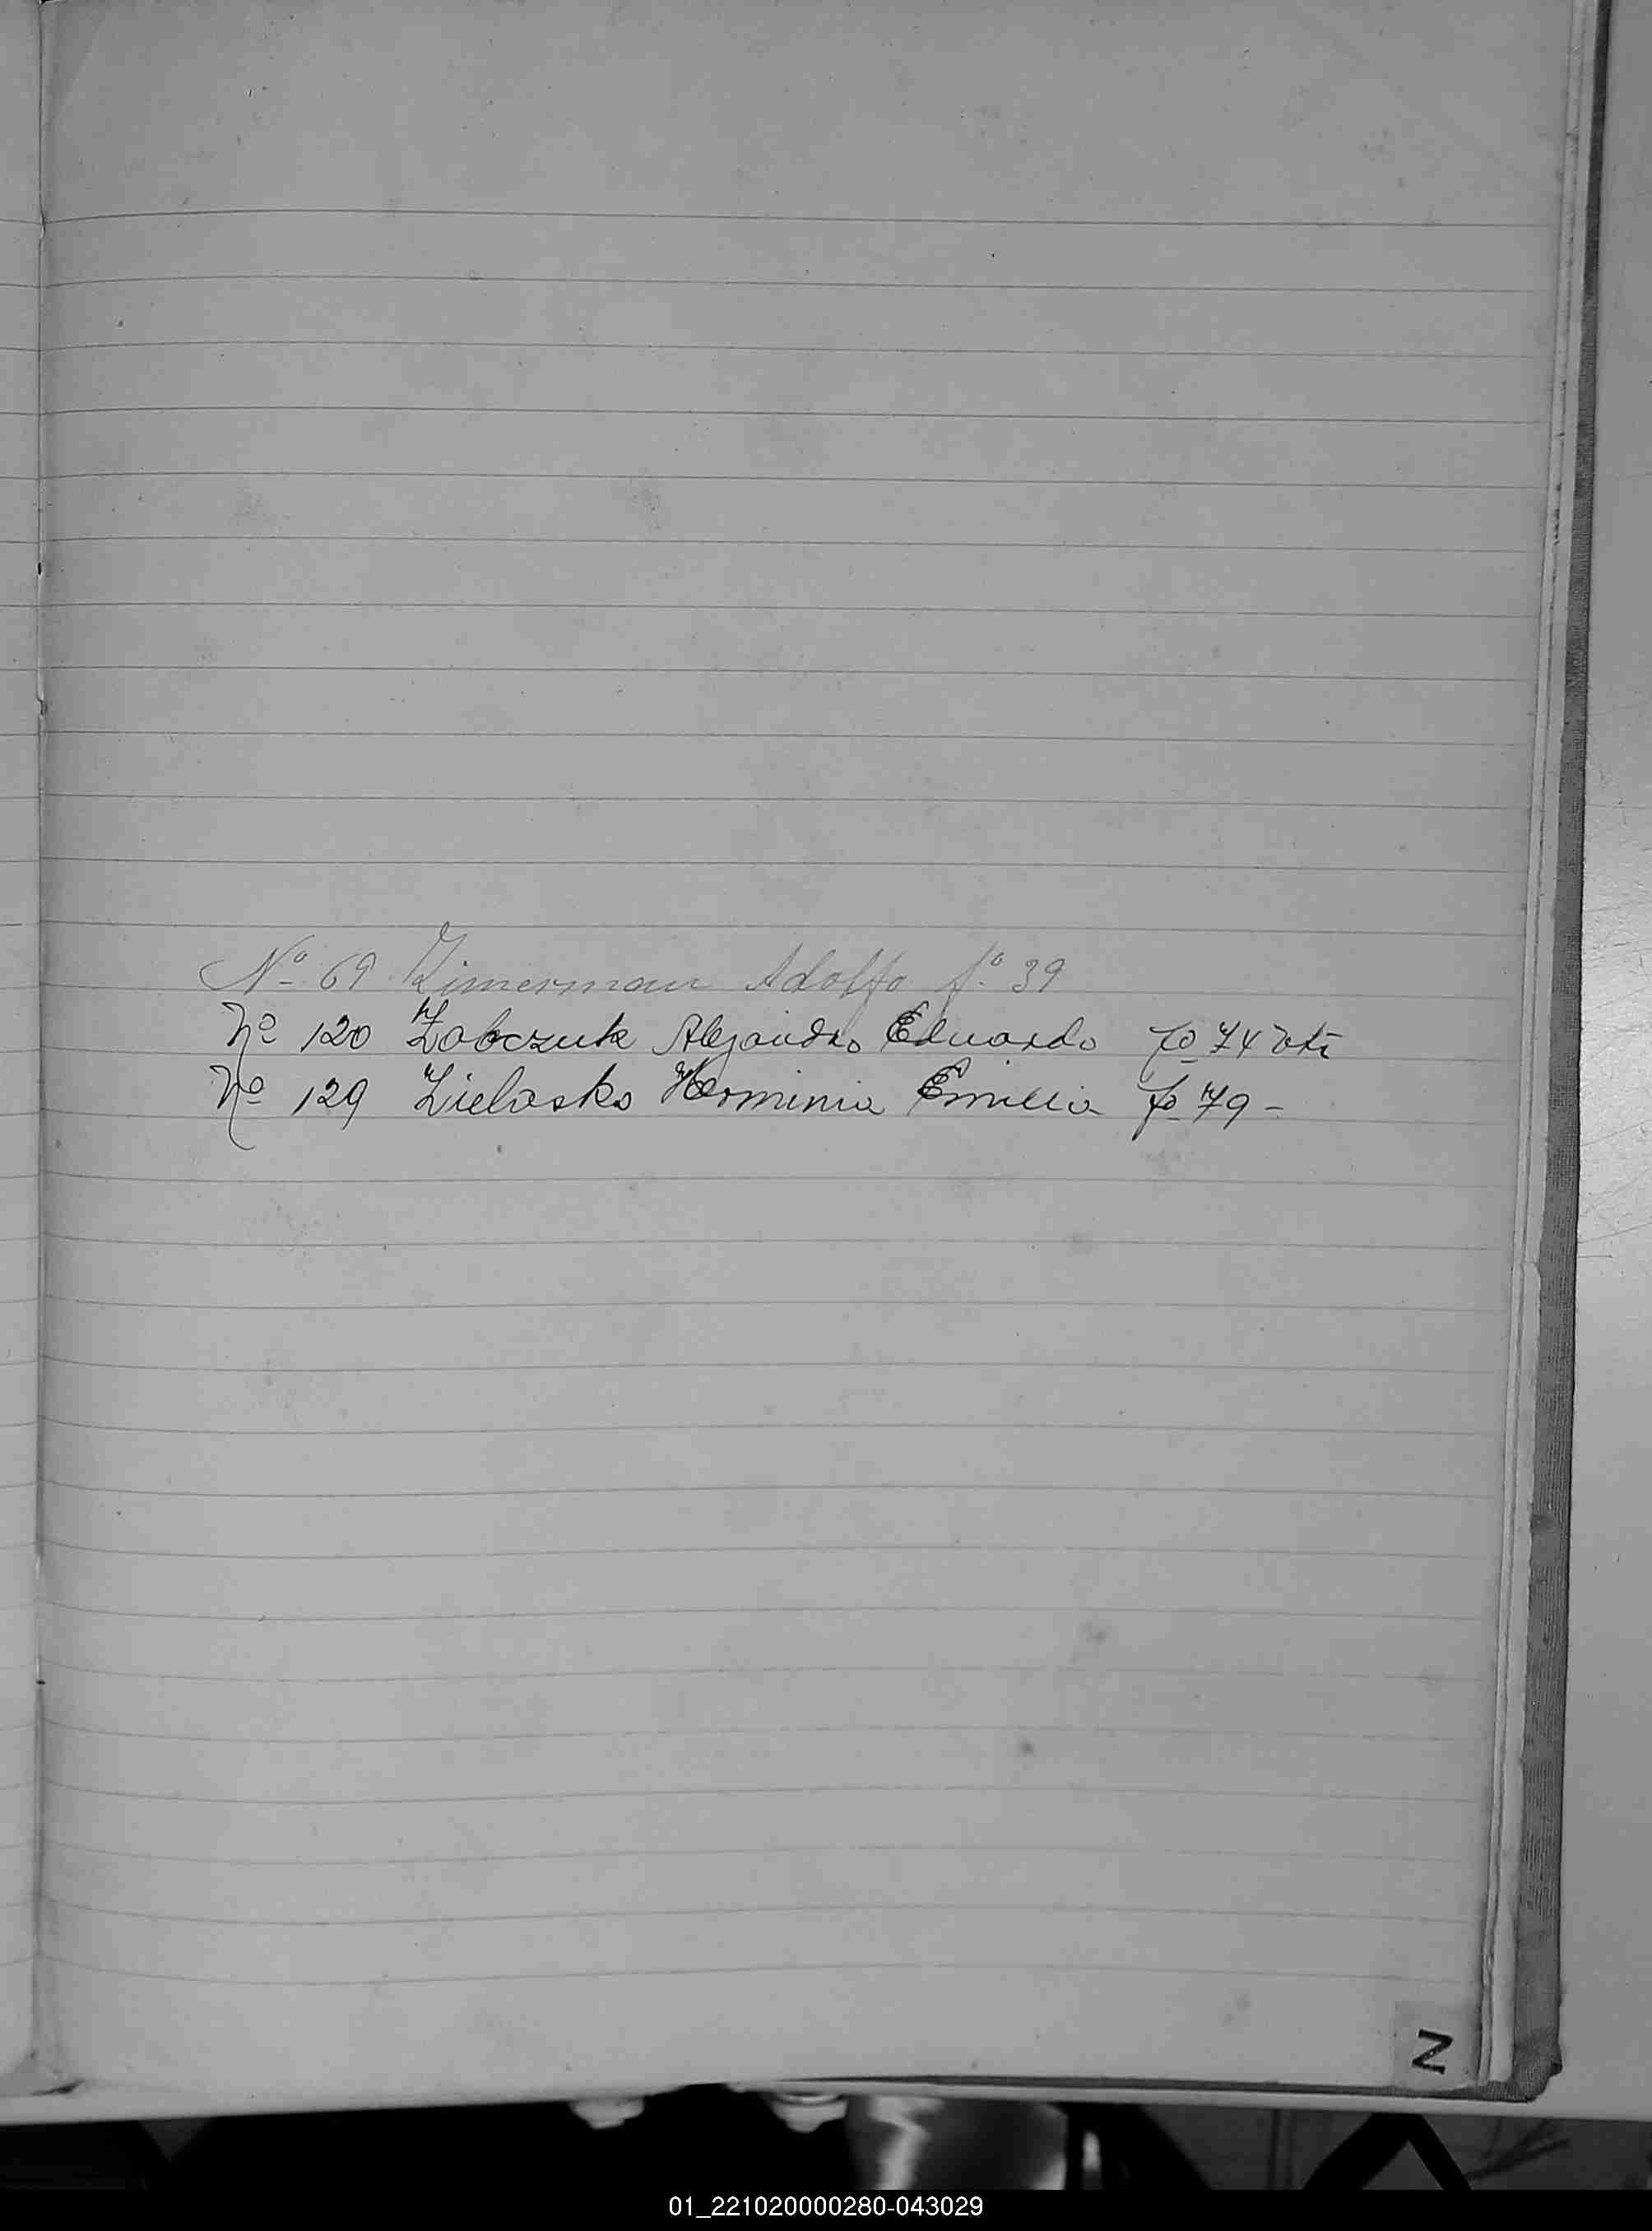 Nº 69 Zimerman Adolfo fº 39
Nº 120 Zabczuk Alejandro Eduardo fº 74 vta
Nº 129 Zielasko Herminia Emilia fº 79 -
Z
01_221020000280-043029